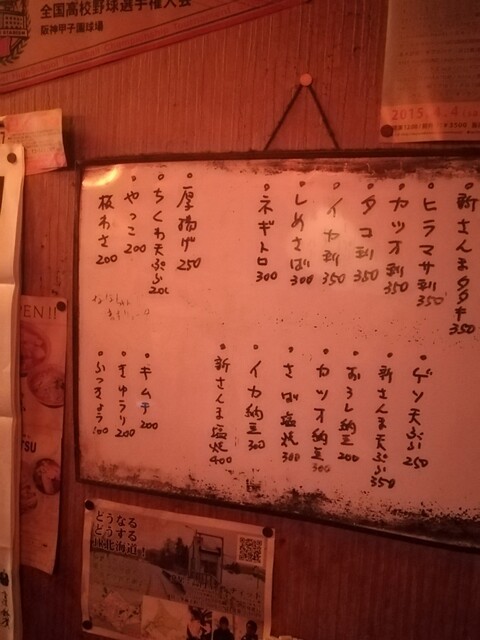 全国高校野球選手権大会
阪神甲子園球場
2015.4.4
新さんまタタキ350
ヒラマサ刺350
カツオ刺350
タコ刺350
イカ刺350
しめさば300
ネギトロ300
厚揚げ250
ちくわ天ぷら200
やっこ200
板わさ200
ゲソ天ぷら250
新さんま天ぷら350
おろし納豆200
カツオ納豆300
さば塩焼300
イカ納豆300
新さんま塩焼400
キムチ200
きゅうり200
らっきょう100
PEN!!
TSU
どうなる
どうする
JR北海道!